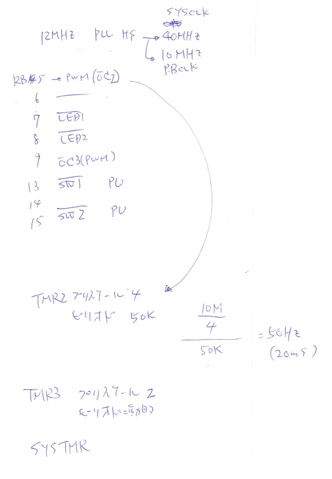 SYSCLK
12MHz PLL HS → 40MHz
→ 10MHz
PBCLK
RB 5 → PWM(OC2)
6
7 LED1
8 LED2
9 OC3(PWM)
13 SW1 PU
14
15 SW2 PU
TMR2 プリスケール 4
ピリオド 50K
10M
4
50K
= 50Hz
(20mS)
TMR3 プリスケール 2
ピリオド=
SYSTMR